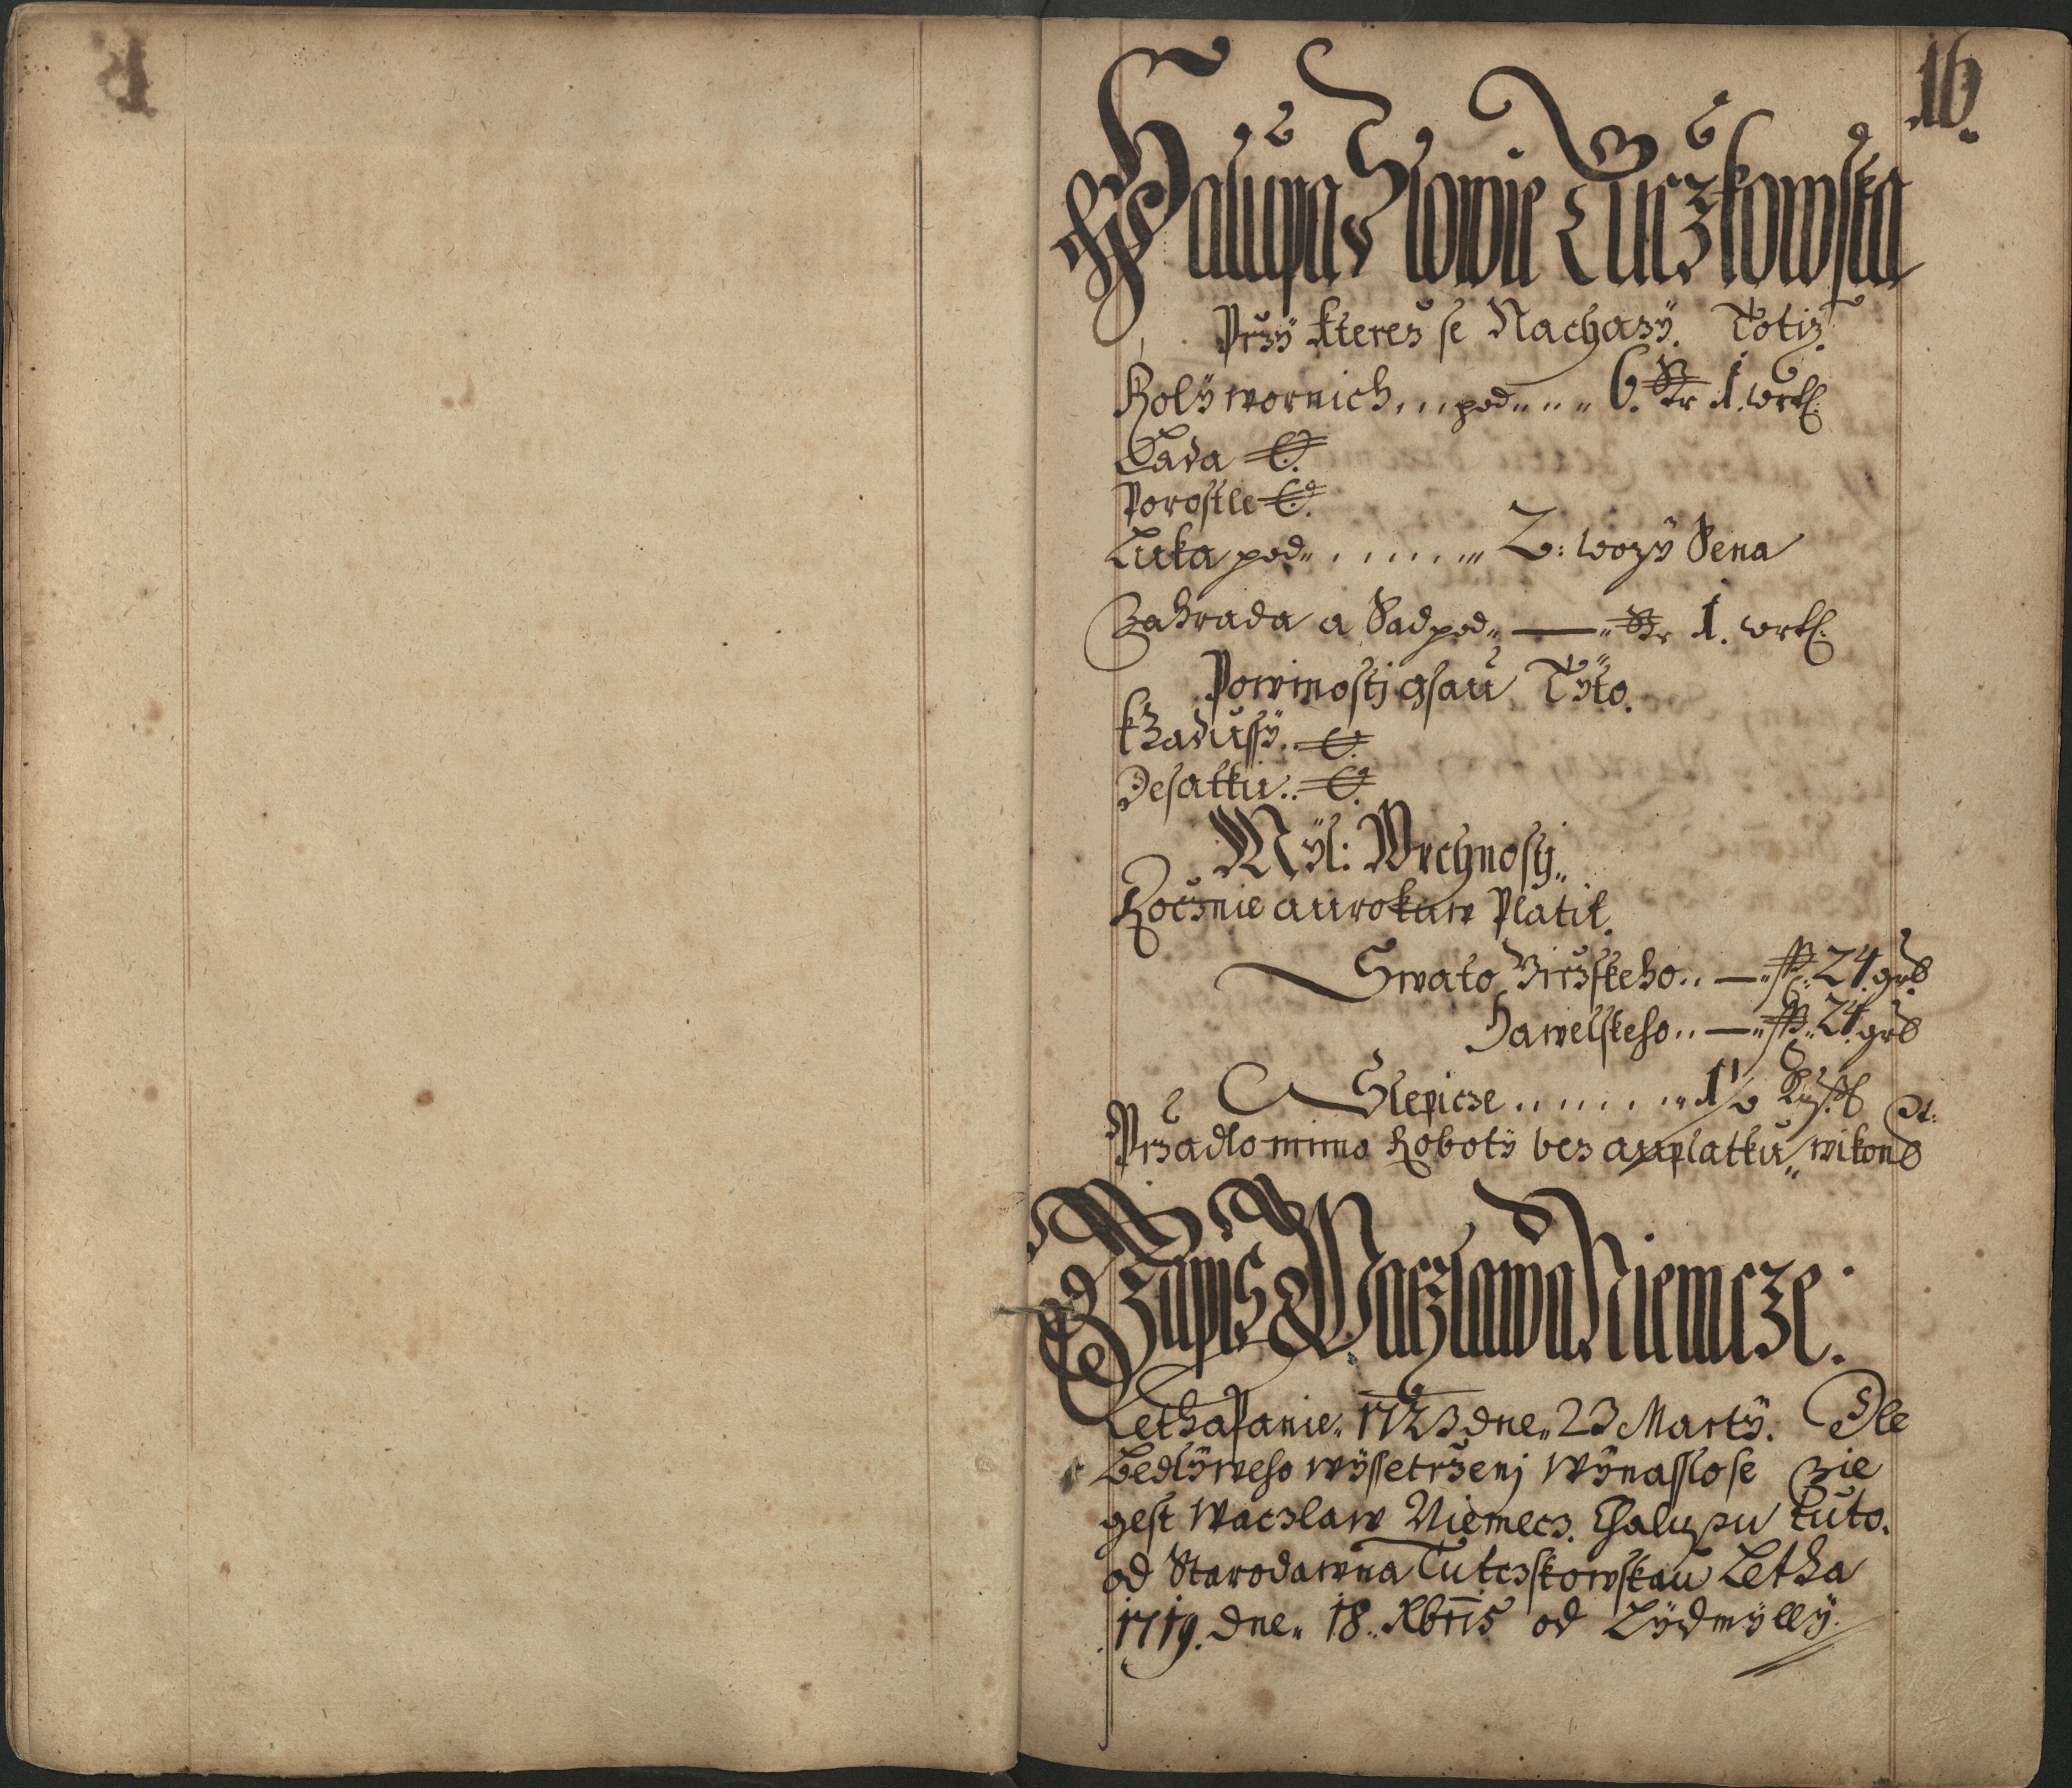 16.
Chalupa Slowie Tuczkowska
Przÿ kterez se Nachazÿ. Totiz.
Rolÿ wornich ... pod .... 6. Str 1. wrtl.
Lada
Porostle
Luka pod ........ 2: wozÿ Sena
Zahrada a Sad pod — Str 1. wrtl.
Powinosti gsau Tÿto.
k Zadussÿ.
Desatku..
Mÿl: Wrchnosti
Rocznie aurokuw Platil.
Swato Girzskeho.. — 24. gr
Hawelskeho.. — 24. gr
Slepicze ........ 1½ Kus
Przadlo mimo Robotÿ bez auplatku wikon
Zapis Waczlawa Niemcze.
Letha Panie 1723 dne 23 Martÿ. Dle
Bedlÿweho wÿssetrzenj wÿnasslo se zie
gest Waczlaw Niemecz. Chalupu tuto.
od Starodawna Tutczskowskau Letha
1719. dne 18. Xbris od Lÿdmÿllÿ